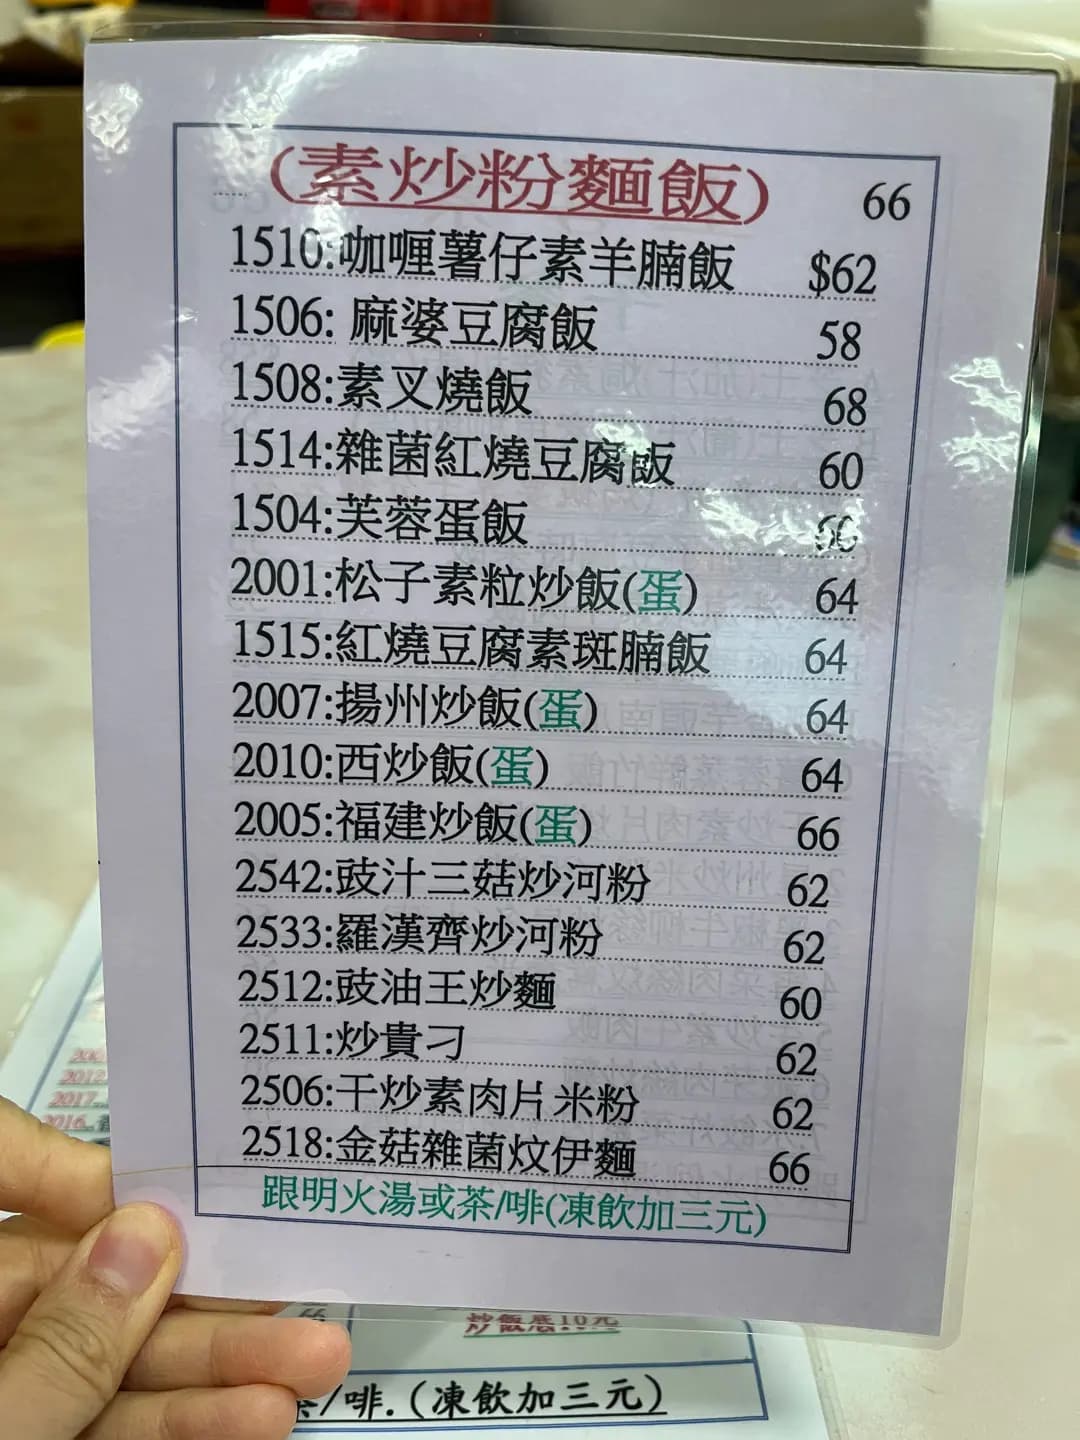 (素炒粉麵飯) 66
1510:咖喱薯仔素羊腩飯 $62
1506: 麻婆豆腐飯 58
1508:素叉燒飯 68
1514:雜菌紅燒豆腐飯 60
1504:芙蓉蛋飯 60
2001:松子素粒炒飯(蛋) 64
1515:紅燒豆腐素斑腩飯 64
2007:揚州炒飯(蛋) 64
2010:西炒飯(蛋) 64
2005:福建炒飯(蛋) 66
2542:豉汁三菇炒河粉 62
2533:羅漢齊炒河粉 62
2512:豉油王炒麵 60
2511:炒貴刁 62
2506:干炒素肉片米粉 62
2518:金菇雜菌炆伊麵 66
跟明火湯或茶/啡(凍飲加三元)
2017
2016
炒飯底10元
/啡.(凍飲加三元)